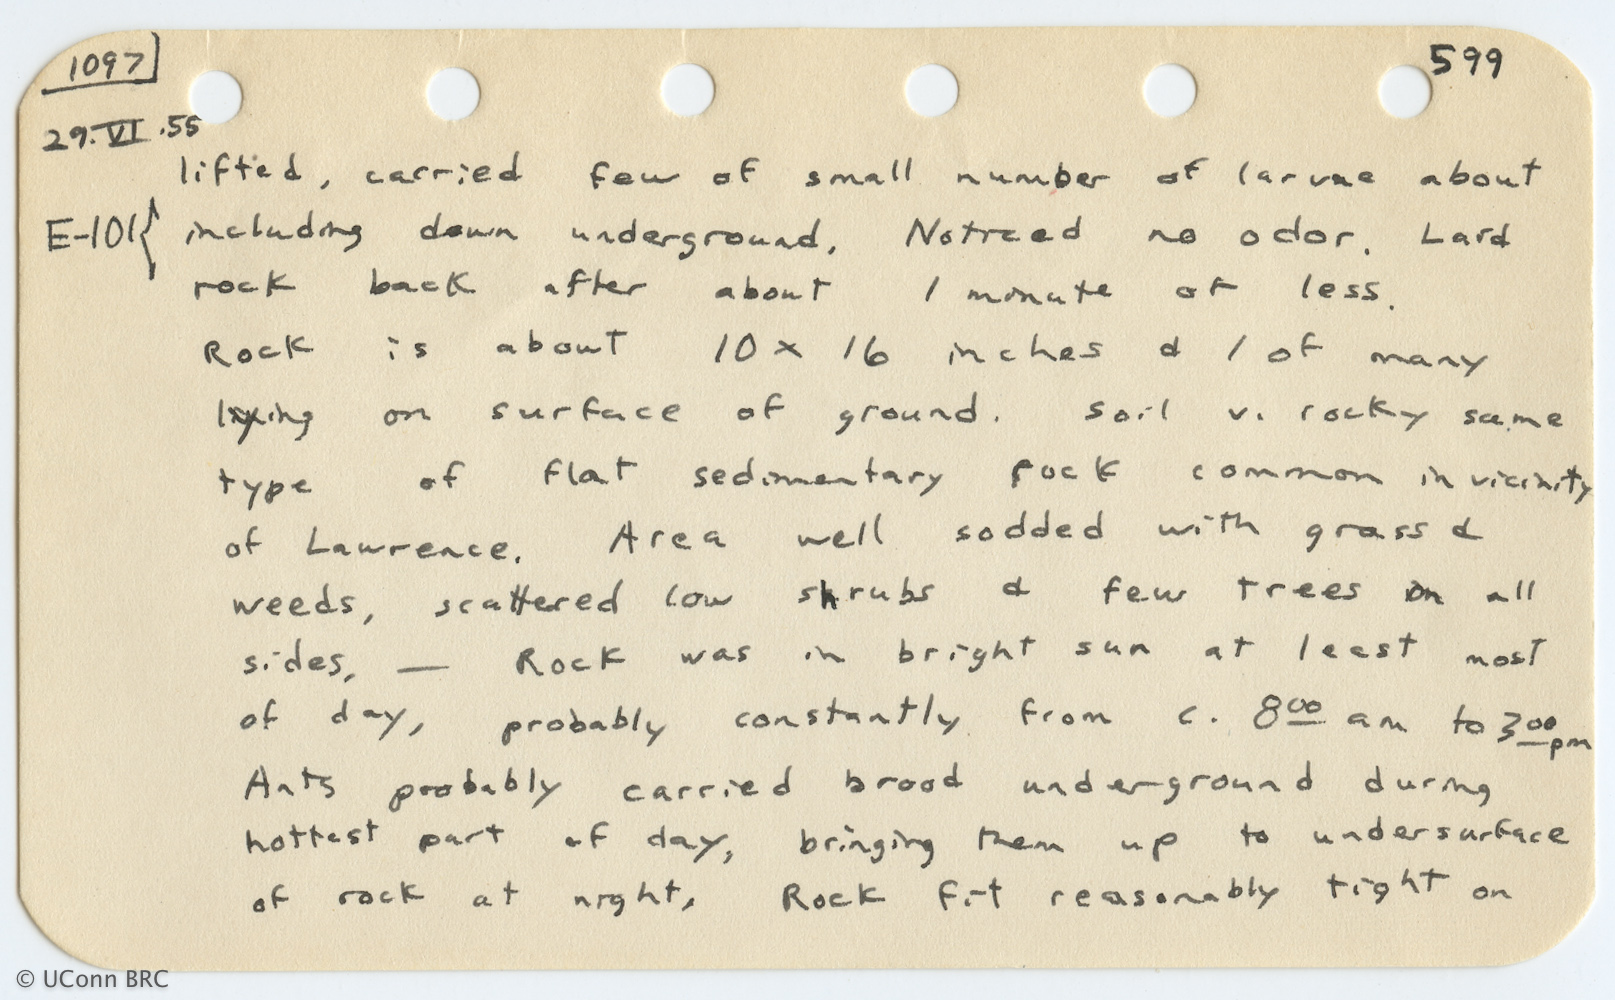 1097
599
29.VI.55
lifted, carried few of small number of larvae about
E-101{ including down underground. Noticed no odor. Laid
rock back after about 1 minute or less.
Rock is about 10 x 16 inches & 1 of many
lying on surface of ground. Soil v. rocky same
type of flat sedimentary rock common in vicinity
of Lawrence. Area well sodded with grass &
weeds, scattered low shrubs & few trees on all
sides. — Rock was in bright sun at least most
of day, probably constantly from c. 8 00 am to 3 00 pm
Ants probably carried brood underground during
hottest part of day, bringing them up to undersurface
of rock at night. Rock fit reasonably tight on
© UConn BRC